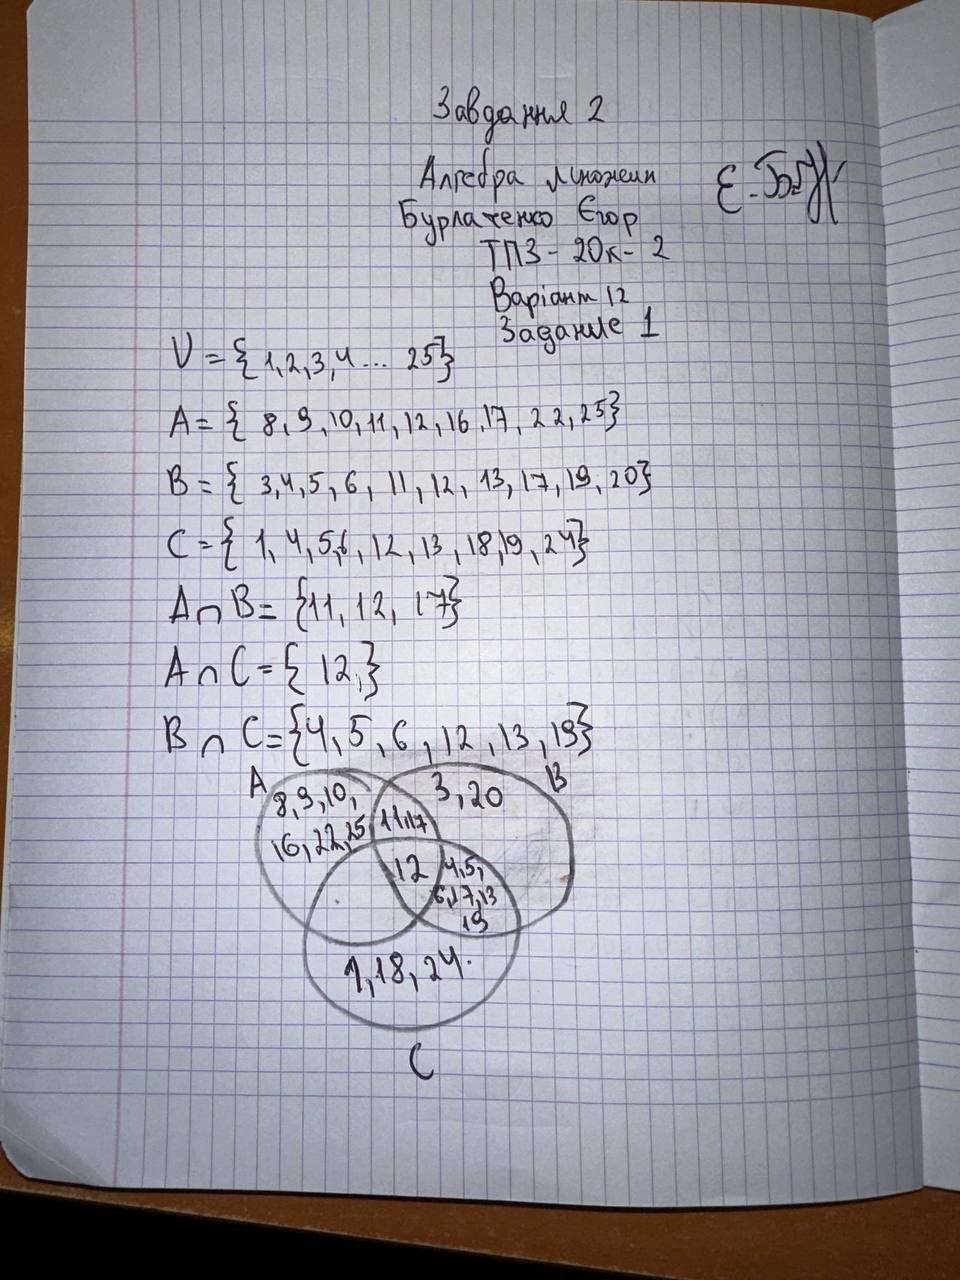 Завдання 2
Алгебра множин
Бурлаченко Єгор
ТПЗ - 20к - 2
Варіант 12
Задание 1
U = { 1,2,3,4 ... 25}
A = { 8, 9, 10, 11, 12, 16, 17, 22, 25}
B = { 3,4, 5, 6, 11, 12, 13, 17, 19, 20}
C = { 1, 4, 5,6, 12, 13, 18,19, 24}
A ∩ B = {11, 12, 17}
A ∩ C = { 12,}
B ∩ C = {4, 5, 6, 12, 13, 19}
A
B
8, 9, 10,
3, 20
16, 22, 25
11,17
12
4,5,
6,17,13
19
1, 18, 24.
C